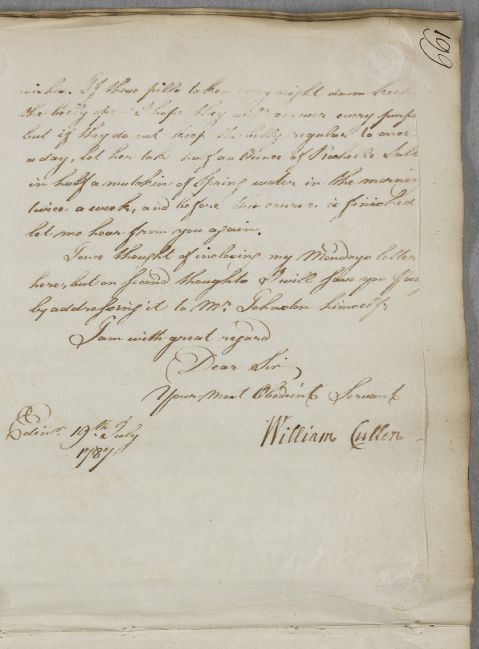 199
wishes. If these pills taken every night do keep
the belly open I hope they will answer every purp
but if they do not keep the belly regular to once
a day, let her take half an Ounce of Rochelle Salt
in half a mutchkin of Spring water in the mornin
twice a week, and before this course is finished
let me hear from you again.
I once thought of inclosing my Mondays letter
here, but on second thoughts I will save you
by addressing it to Mr. Johnston himself.
I am with great regard
Dear Sir
Your Most Obedient Servant
William Cullen
Edinr. 19th July
1787